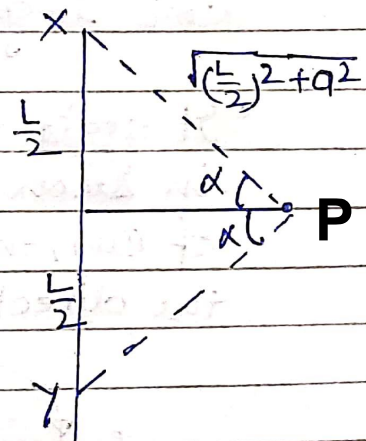 X
√(L/2)² + a²
L/2
α
P
α
L/2
Y